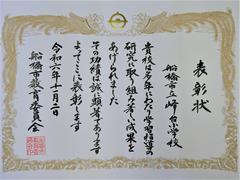 表彰状
船橋市立峰台小学校
貴校は多年にわたり学習指導の
研究に取り組み著しい成果を
あげられました
その功績は誠に顕著であります
よってここに表彰します
令和六年十一月二日
船橋市教育委員会